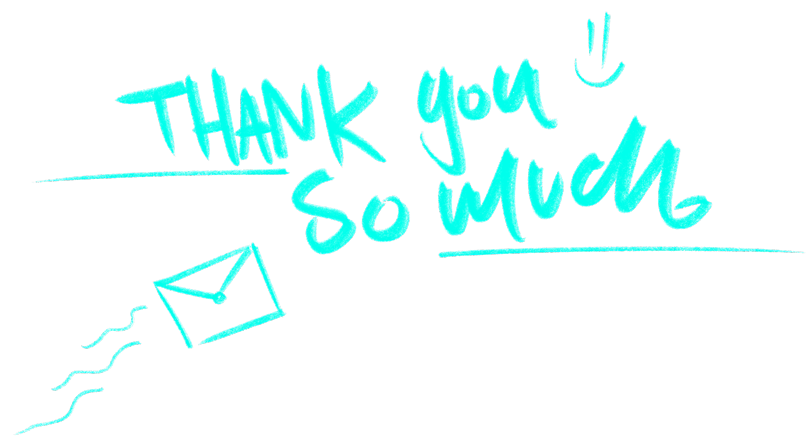 THANK you
so much